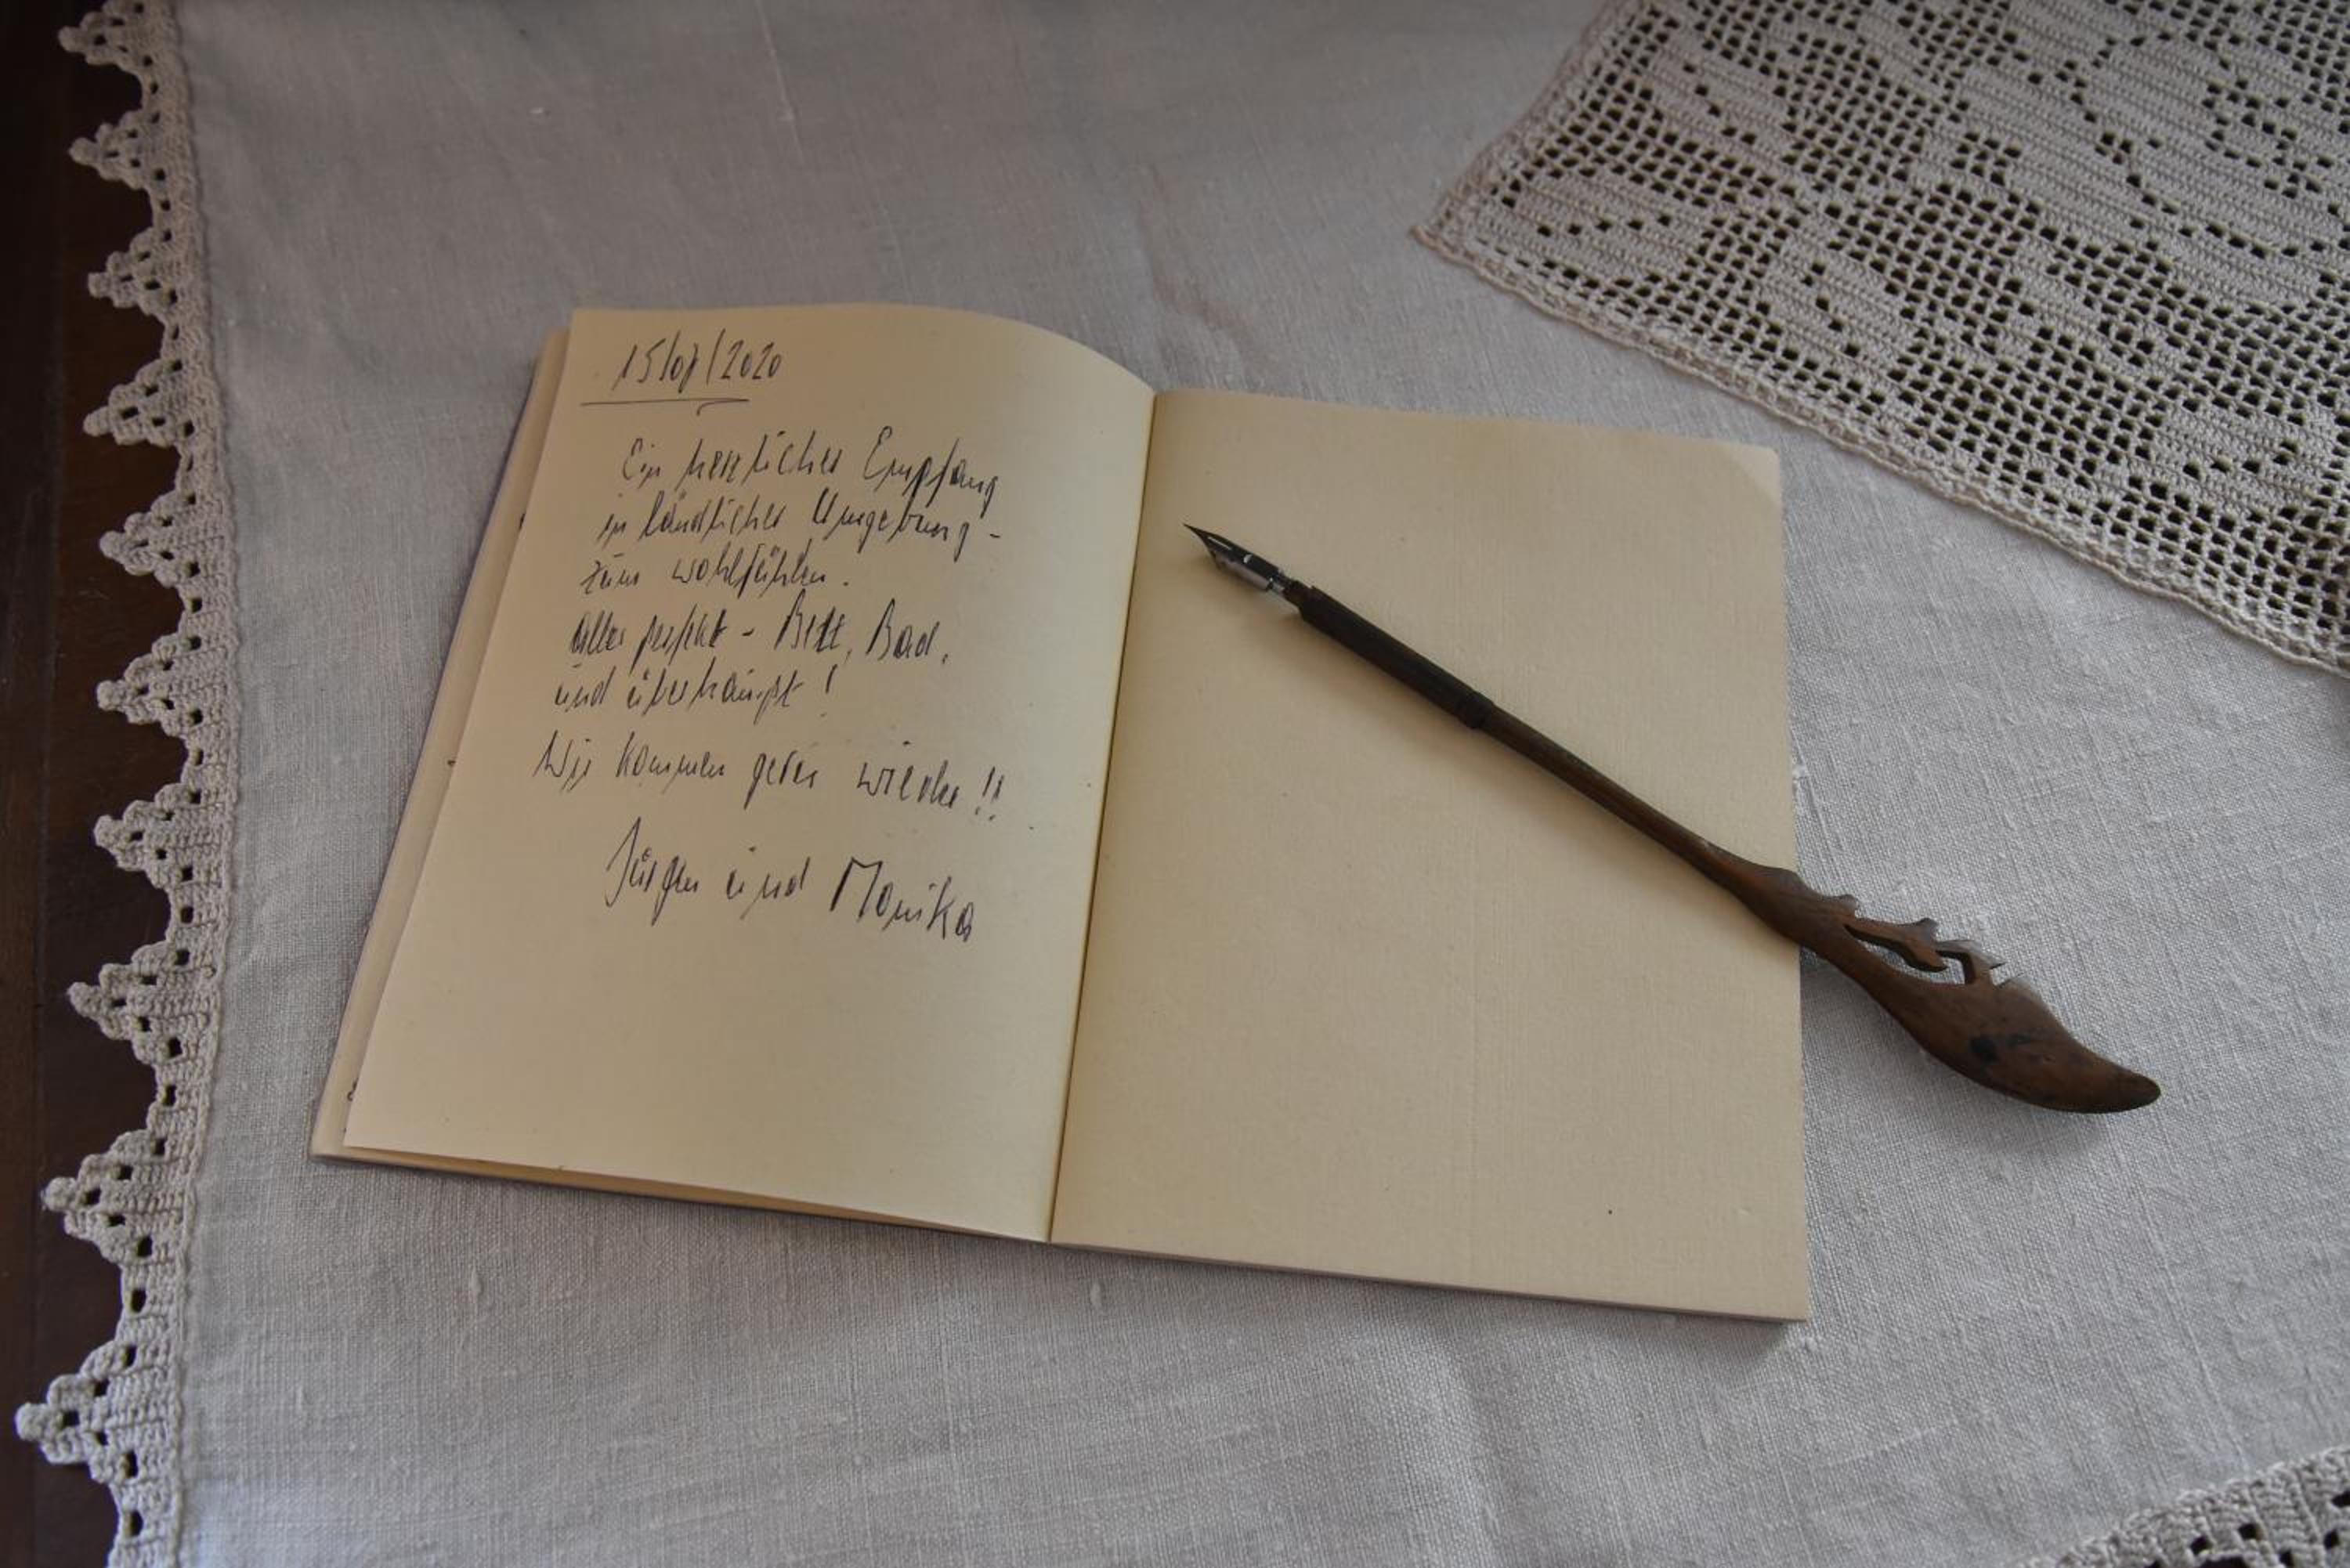 15/07/2020
Ein herzlicher Empfang
in ländlicher Umgebung -
zum wohlfühlen.
alles perfekt - Bett, Bad,
und überhaupt !
Wir kommen gerne wieder !!
Jürgen und Monika